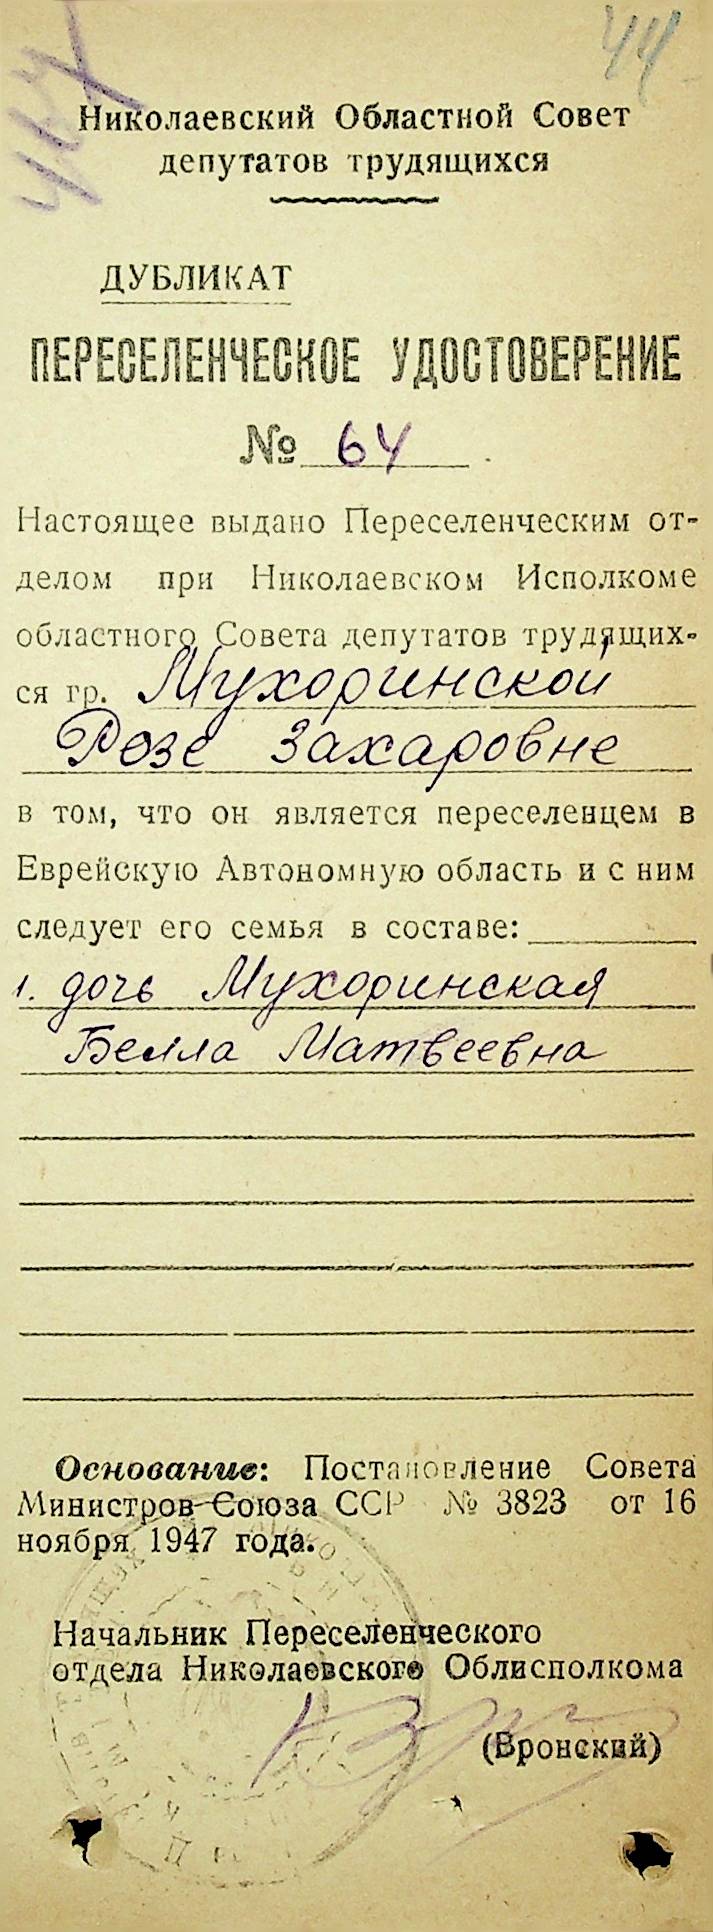 44
Николаевский Областной Совет
депутатов трудящихся
ДУБЛИКАТ
ПЕРЕСЕЛЕНЧЕСКОЕ УДОСТОВЕРЕНИЕ
№ 64.
Настоящее выдано Переселенческим от-
делом при Николаевском Исполкоме
областного Совета депутатов трудящих-
ся гр. Мухоринской
Розе Захаровне
в том, что он является переселенцем в
Еврейскую Автономную область и с ним
следует его семья в составе:
1. дочь Мухоринская
Белла Матвеевна
Основание: Постановление Совета
Министров Союза ССР № 3823 от 16
ноября 1947 года.
Начальник Переселенческого
отдела Николаевского Облисполкома
(Вронский)